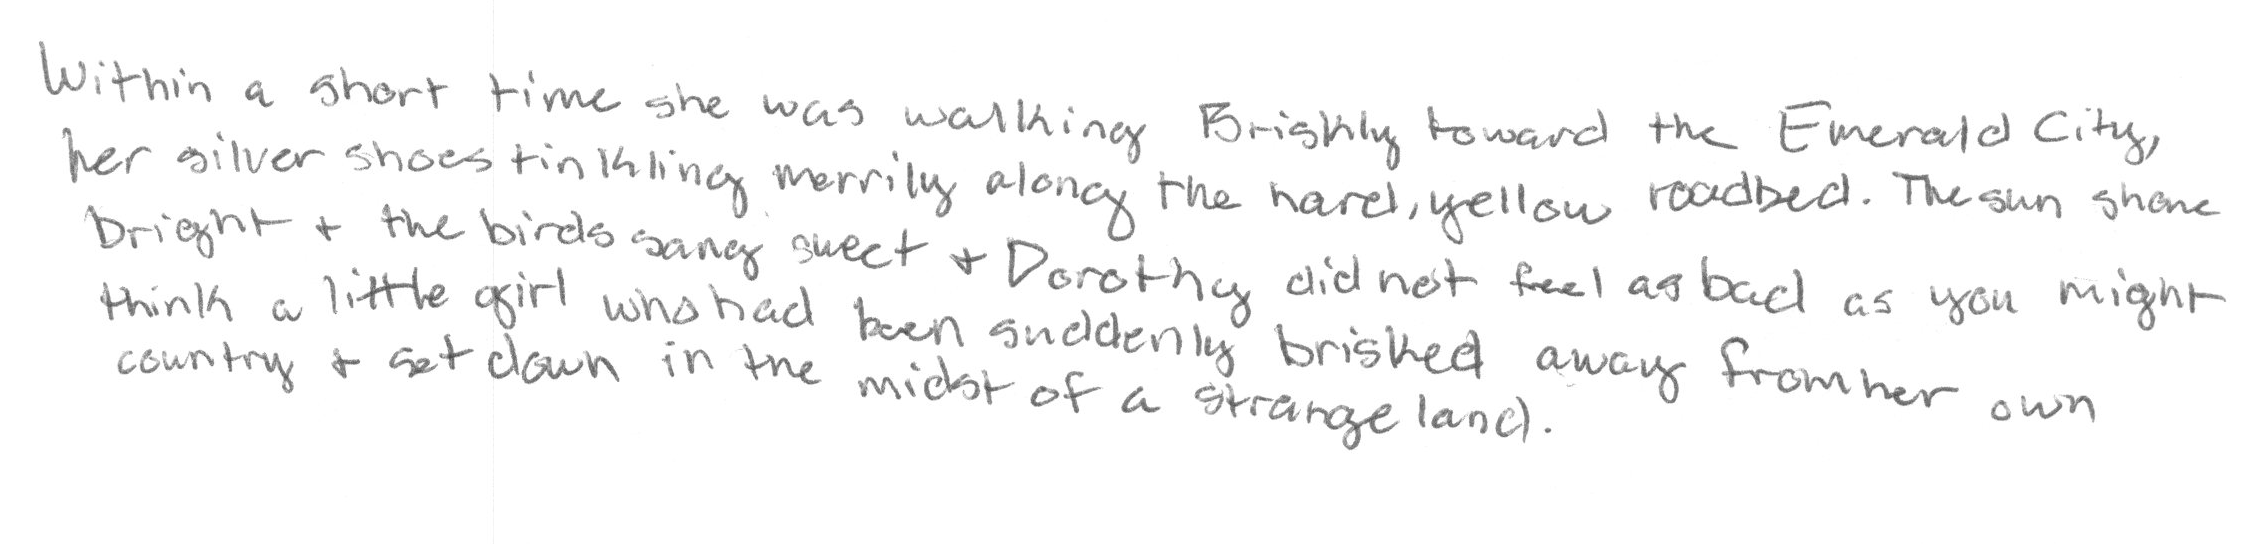 Within a short time she was walking Briskly toward the Emerald City,
her silver shoes tinkling merrily along the hard, yellow roadbed. The sun shone
bright + the birds sang sweet + Dorothy did not feel as bad as you might
think a little girl who had been suddenly brisked away from her own
country + set down in the midst of a strange land.